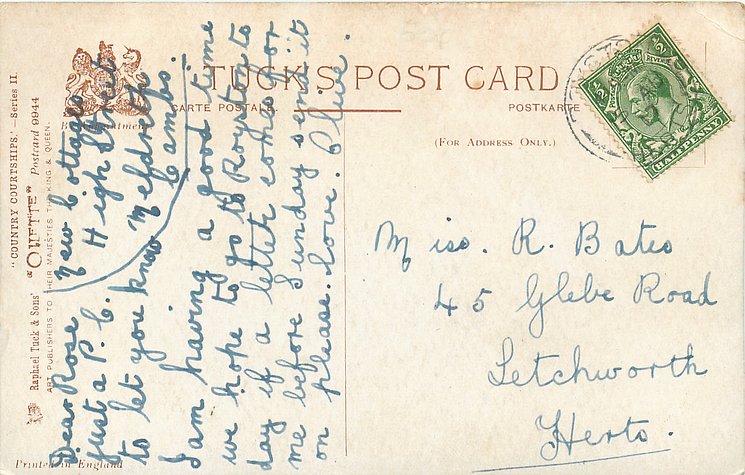 "COUNTRY COURTSHIPS."—Series II.
Raphael Tuck & Sons' "OILETTE" Postcard 9944
ART PUBLISHERS TO THEIR MAJESTIES THE KING & QUEEN.
TUCK'S POST CARD
CARTE POSTALE
POSTKARTE
(FOR ADDRESS ONLY.)
HALFPENNY
New Cottages
High Street
Meldreth
Cambs.
Dear Rose
Just a P.C.
to let you know
I am having a good time
we hope to go to Royston to
day if a letter comes for
me before Sunday send it
on please. Love. Olive.
Miss. R. Bates
45 Glebe Road
Letchworth
Herts.
Printed in England